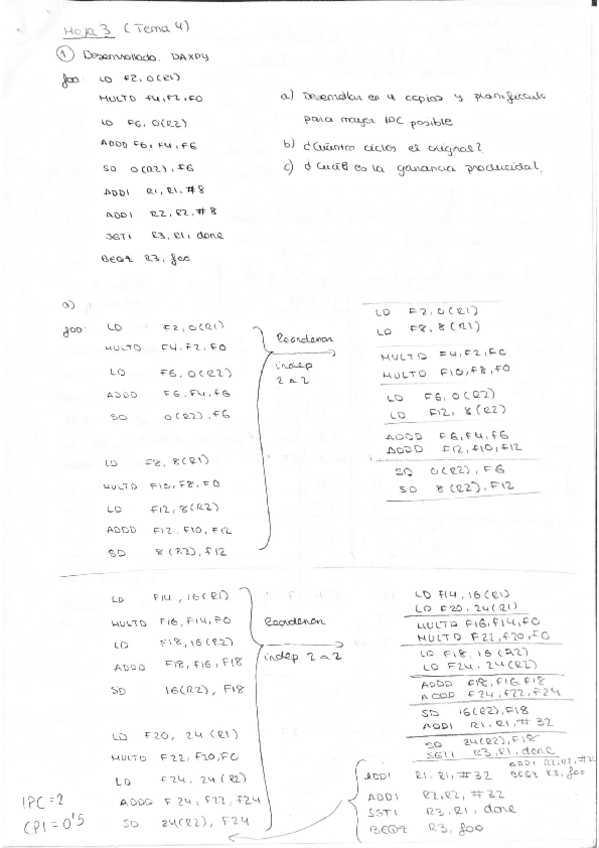 Hoja 3 (Tema 4)
① Desenrollado. DAXPY
foo: LD F2, 0(R1)
MULTD F4, F2, F0
LD F6, 0(R2)
ADDD F6, F4, F6
SD 0(R2), F6
ADDI R1, R1, #8
ADDI R2, R2, #8
SGTI R3, R1, done
BEQZ R3, foo
a) Desenrollar en 4 copias y planificarlo
para mayor IPC posible
b) ¿Cuántos ciclos el original?
c) ¿Cuál es la ganancia producida?
a)
foo: LD F2, 0(R1)
MULTD F4, F2, F0
LD F6, 0(R2)
ADDD F6, F4, F6
SD 0(R2), F6
LD F8, 8(R1)
MULTD F10, F8, F0
LD F12, 8(R2)
ADDD F12, F10, F12
SD 8(R2), F12
Reordenan
indep
2 a 2
LD F2, 0(R1)
LD F8, 8(R1)
MULTD F4, F2, F0
MULTD F10, F8, F0
LD F6, 0(R2)
LD F12, 8(R2)
ADDD F6, F4, F6
ADDD F12, F10, F12
SD 0(R2), F6
SD 8(R2), F12
LD F14, 16(R1)
MULTD F16, F14, F0
LD F18, 16(R2)
ADDD F18, F16, F18
SD 16(R2), F18
LD F20, 24(R1)
MULTD F22, F20, F0
LD F24, 24(R2)
ADDD F24, F22, F24
SD 24(R2), F24
Reordenan
indep 2 a 2
LD F14, 16(R1)
LD F20, 24(R1)
MULTD F16, F14, F0
MULTD F22, F20, F0
LD F18, 16(R2)
LD F24, 24(R2)
ADDD F18, F16, F18
ADDD F24, F22, F24
SD 16(R2), F18
ADDI R1, R1, #32
SD 24(R2), F18
SGTI R3, R1, done
ADDI R2, R2, #32
BEQZ R3, foo
ADDI R1, R1, #32
ADDI R2, R2, #32
SGTI R3, R1, done
BEQZ R3, foo
IPC = 2
CPI = 0'5